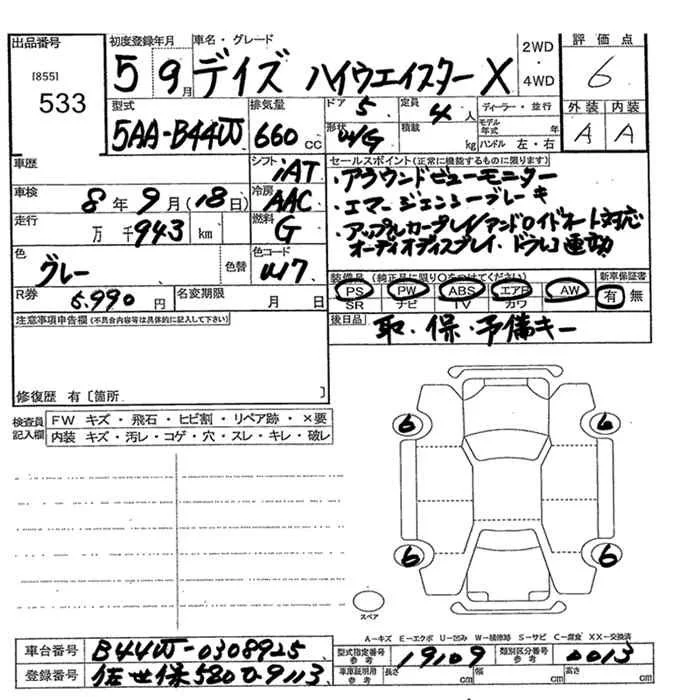 出品番号 初度登録年月 車名・グレード 2WD 評価点
[8551] 5 9月 デイズ ハイウエイスター X ・ 4WD 6
533 型式 排気量 ドア 5 定員 4人 ディーラー・並行 外装 内装
5AA-B44W 660cc 形状 W/G 積載 kg モデル年式 年 ハンドル 左・右 A A
車歴 シフト iAT セールスポイント(正常に機能するものに限ります)
車検 8年 9月(18日) 冷房 AAC ・アラウンドビューモニター
走行 万 千 943 km 燃料 G ・エマージェンシーブレーキ
色 グレー 色替 色コード ・アップルカープレイ/アンドロイドオート対応
オーディオディスプレイ・ドラレコ連動
R券 5.990円 名変期限 月 日 装備品 (純正品に限り○をつけてください) 新車保証書
PS PW ABS エアB AW 有 無
SR ナビ TV カワ
注意事項申告欄 (不具合内容等は具体的に記入して下さい) 後日品 取・保・予備キー
修復歴 有〔箇所 〕
検査員記入欄 FW キズ・飛石・ヒビ割・リペア跡・×要
内装 キズ・汚レ・コゲ・穴・スレ・キレ・破レ
6 6
6 6
スペア
A-キズ E-エクボ U-凹み W-補修跡 S-サビ C-腐食 XX-交換済
車台番号 B44W-0308925 型式指定番号 参考 19109 類別区分番号 参考 0013
登録番号 佐世保580 9113 車庫証明用 参考 長さ cm 幅 cm 高さ cm